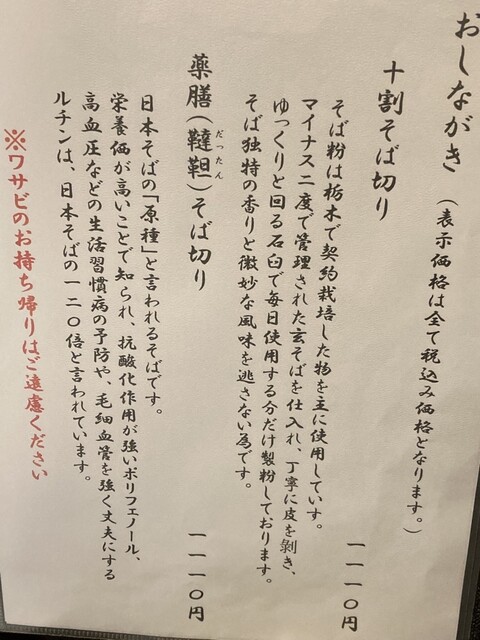 おしながき
(表示価格は全て税込み価格となります。)
十割そば切り
一一一〇円
そば粉は栃木で契約栽培した物を主に使用していす。
マイナス二度で管理された玄そばを仕入れ、丁寧に皮を剝き、
ゆっくりと回る石臼で毎日使用する分だけ製粉しております。
そば独特の香りと微妙な風味を逃さない為です。
薬膳(韃靼)そば切り
だったん
一一一〇円
日本そばの「原種」と言われるそばです。
栄養価が高いことで知られ、抗酸化作用が強いポリフェノール、
高血圧などの生活習慣病の予防や、毛細血管を強く丈夫にする
ルチンは、日本そばの一二〇倍と言われています。
※ワサビのお持ち帰りはご遠慮ください